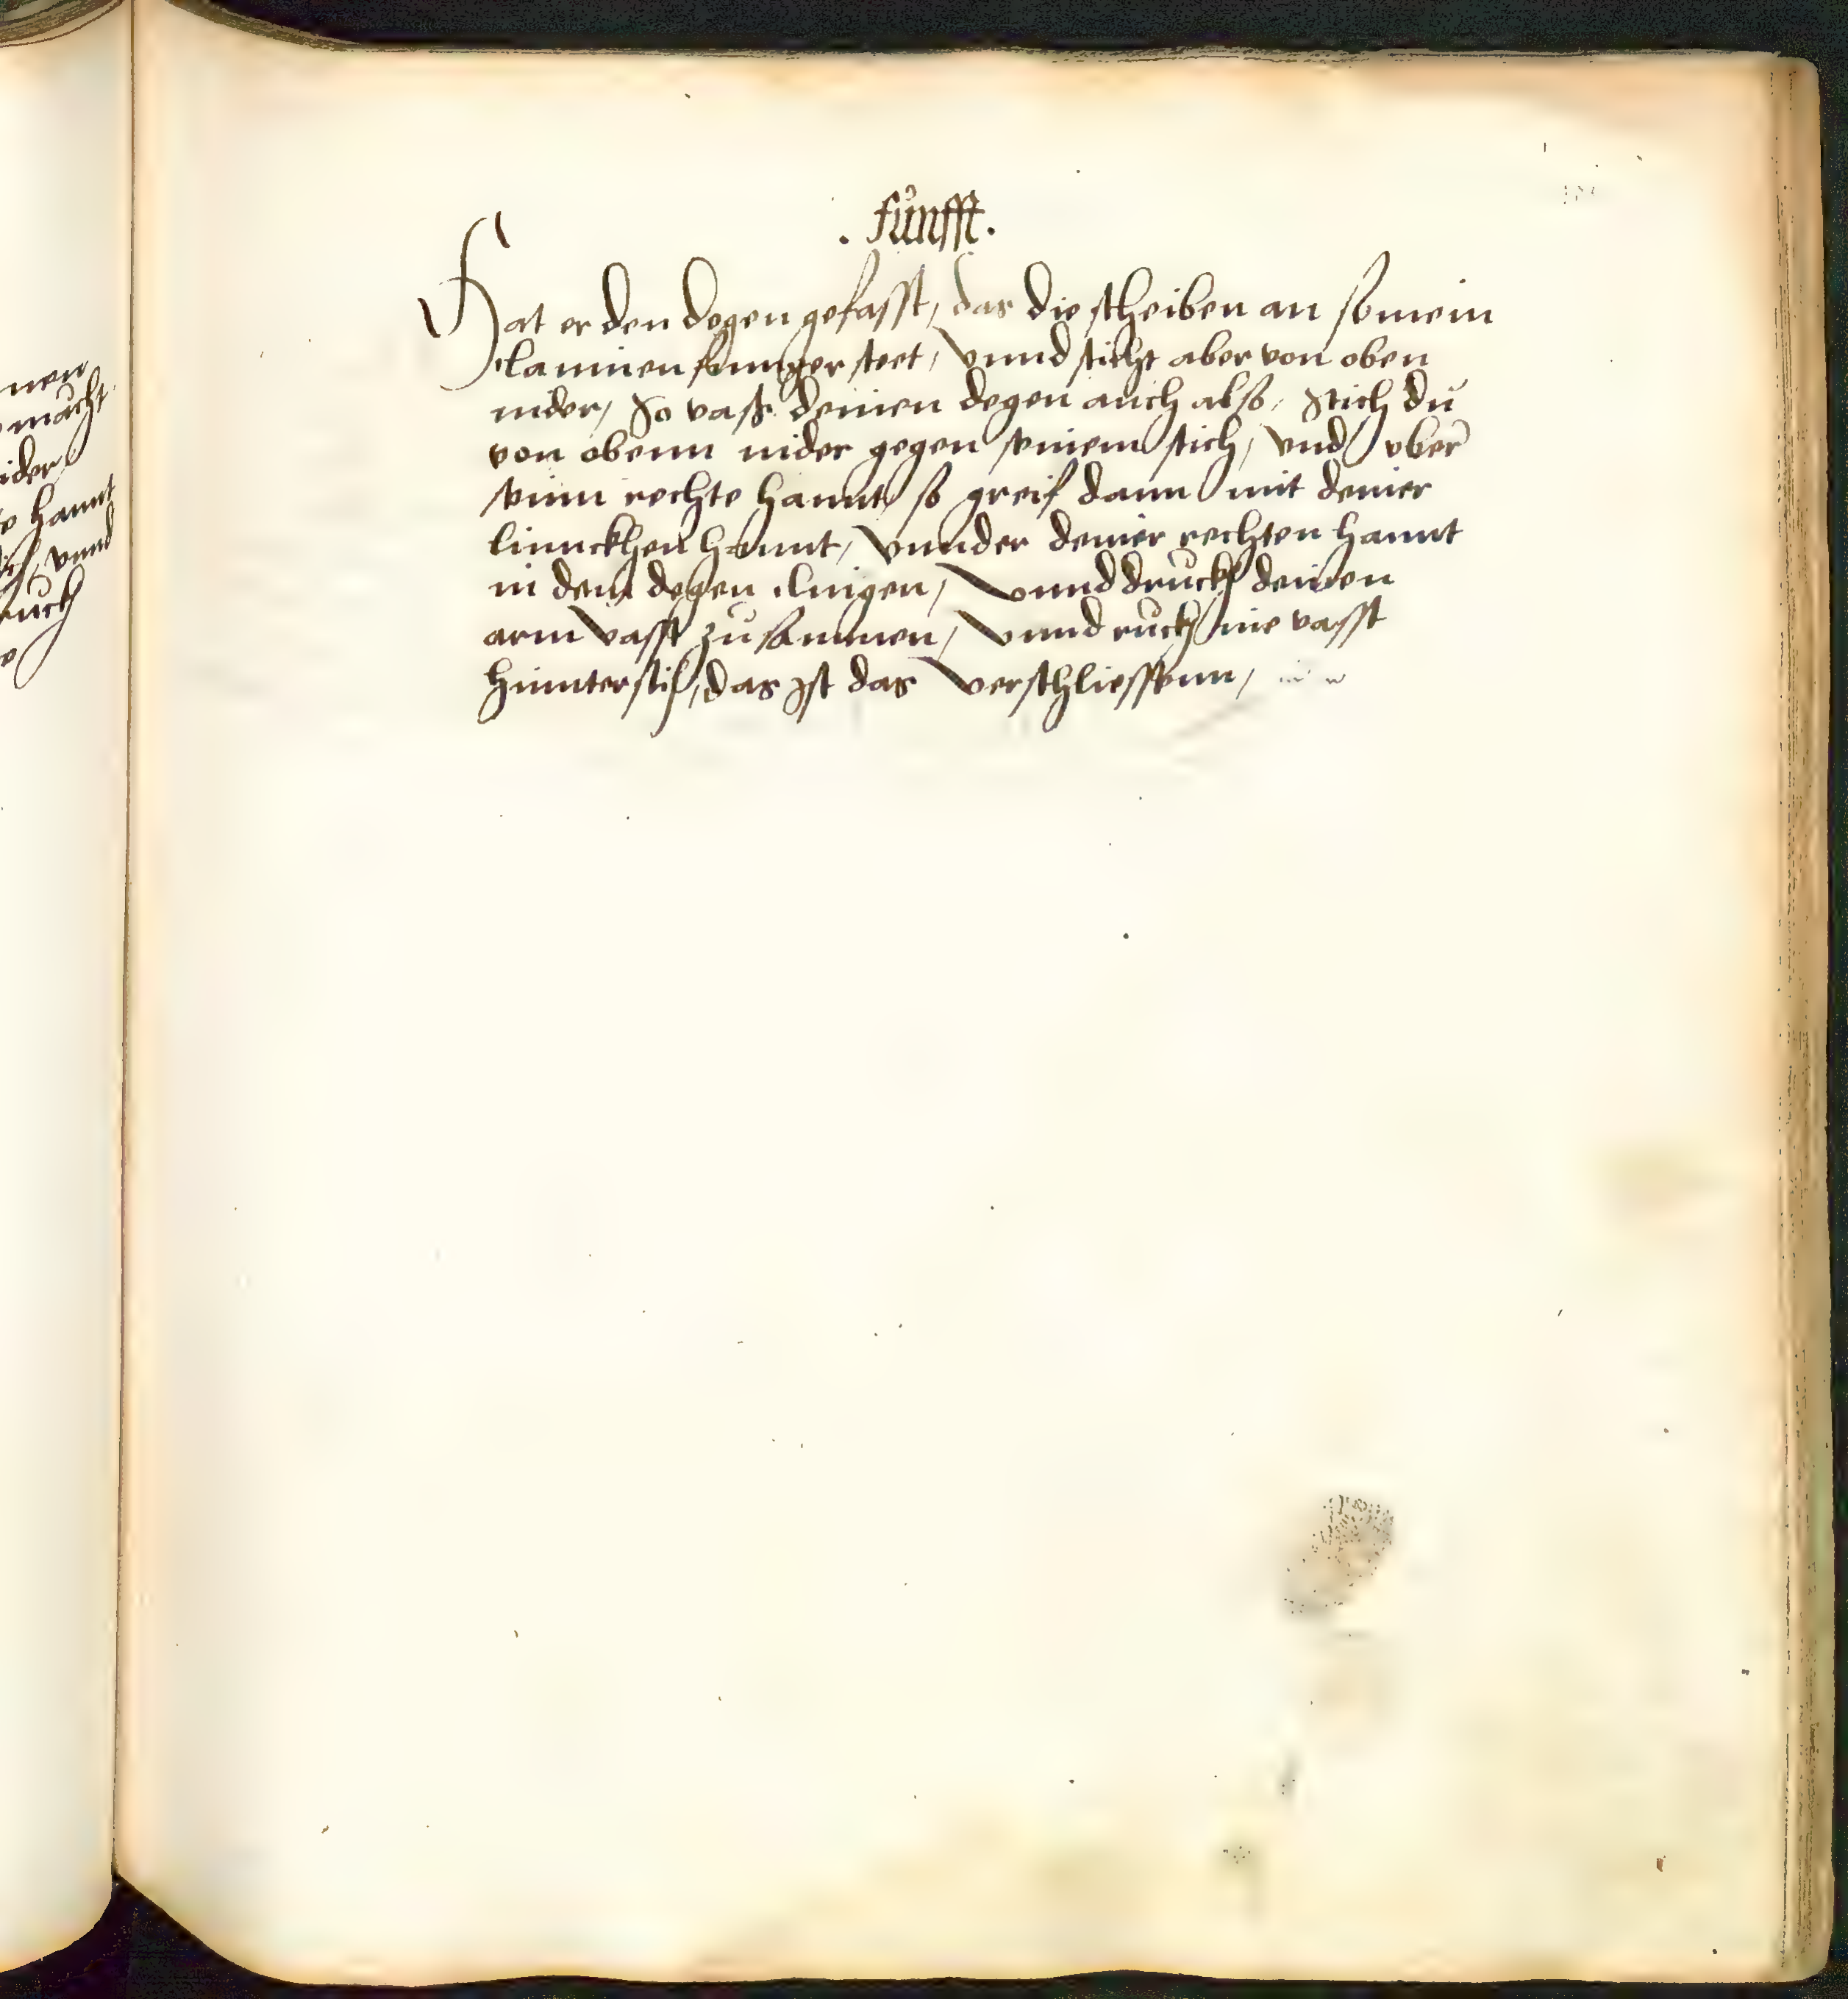 nen
macht
. fünfft .
Hat er den degen gefasst, das die scheiben an seinem
ider
clainnen finnger steet, Vnnd sticht aber von oben
hannt
nider, So vass deinen degen auch also, stich du
vnnd
von obenn nider gegen seinem stich, vnd vber
ruck
seinn rechte hannt so greif dann mit deiner
linnckhen hannt, Vnnder deiner rechten hannt
in dein degen clingen, Vnnd druckh deinen
arm vasst zusammen, Vnnd ruckh inne vasst
hinntersich, das ist das Verschliessenn,